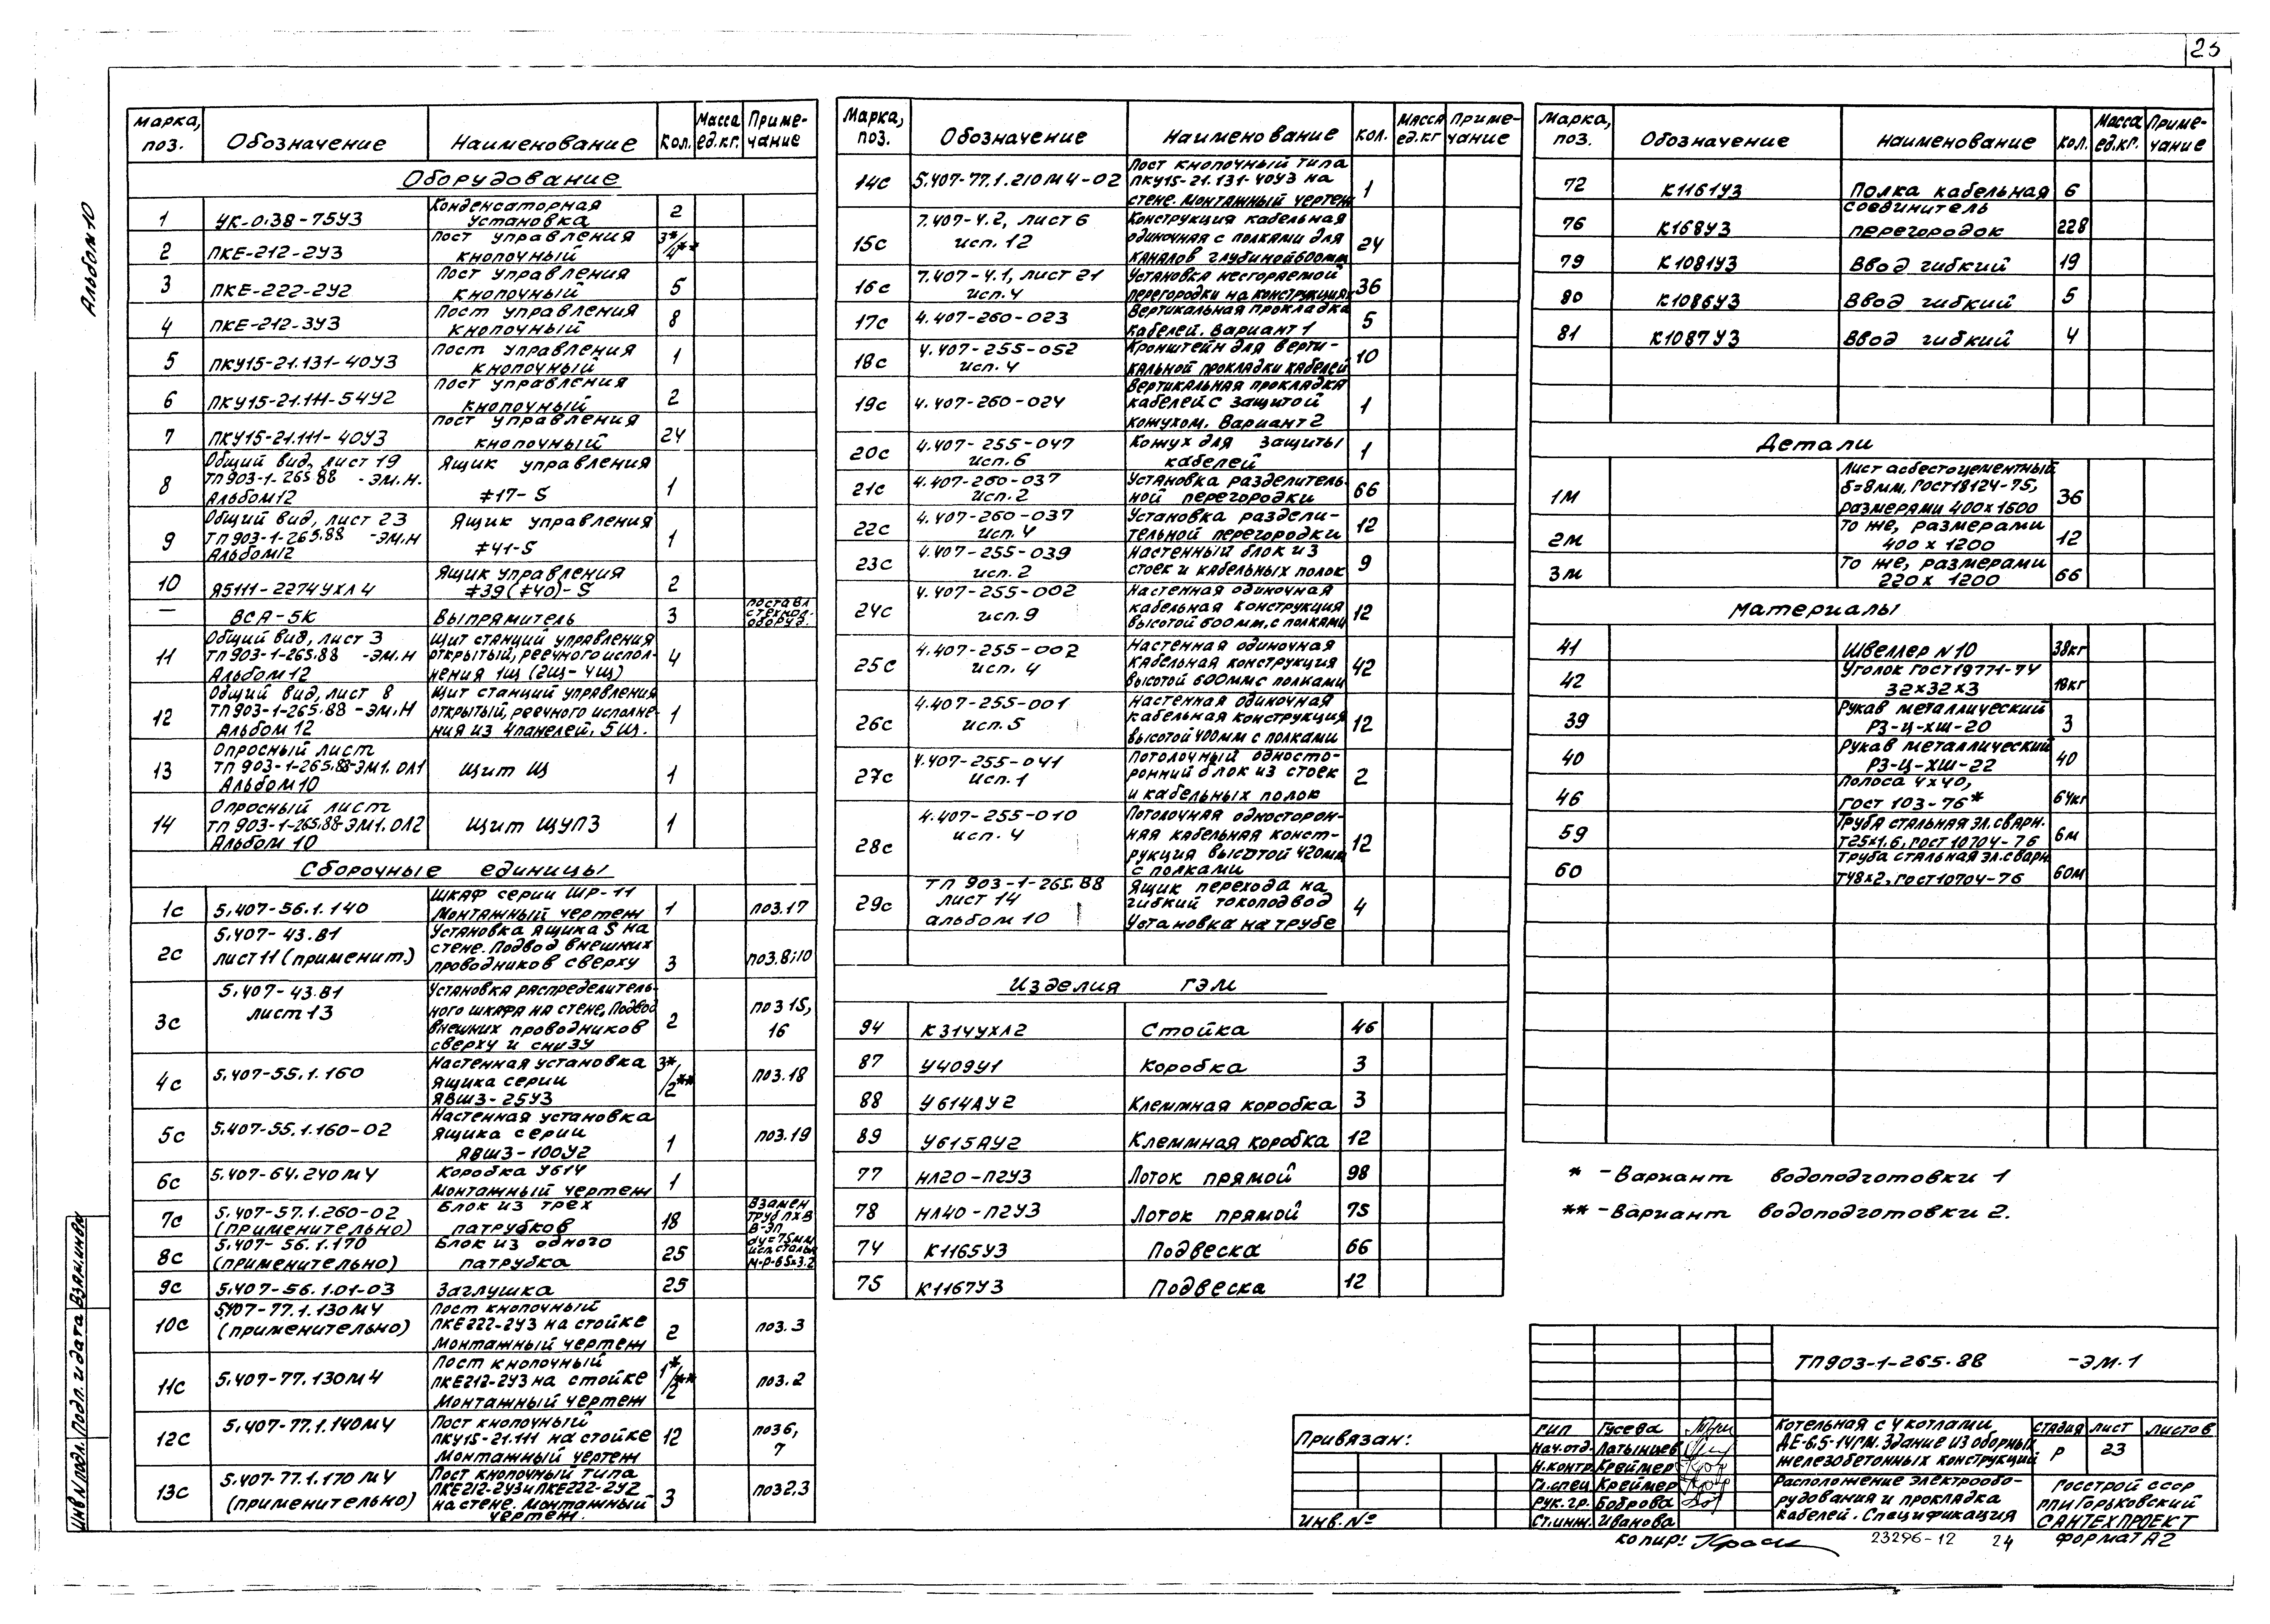 23
Альбом 10
Марка, поз. Обозначение Наименование Кол. Масса ед.кг. Примечание
Оборудование
1 УК-0,38-75У3 Конденсаторная установка 2
2 ПКЕ-212-2У3 Пост управления кнопочный 3*/4**
3 ПКЕ-222-2У2 Пост управления кнопочный 5
4 ПКЕ-212-3У3 Пост управления кнопочный 8
5 ПКУ15-21.131-40У3 Пост управления кнопочный 1
6 ПКУ15-21.111-54У2 Пост управления кнопочный 2
7 ПКУ15-21.111-40У3 Пост управления кнопочный 24
8 Общий вид, лист 19 ТП903-1-265.88 -ЭМ.Н. Альбом 12 Ящик управления ≠17-S 1
9 Общий вид, лист 23 ТП903-1-265.88 -ЭМ.Н Альбом 12 Ящик управления ≠41-S 1
10 Я5111-2274УХЛ4 Ящик управления ≠39(≠40)-S 2
— ВСА-5К Выпрямитель 3 поставл с технол. оборуд.
11 Общий вид, лист 3 ТП903-1-265.88 -ЭМ.Н Альбом 12 Щит станций управления открытый, реечного исполнения 1Щ (2Щ-4Щ) 4
12 Общий вид, лист 8 ТП903-1-265.88 -ЭМ.Н Альбом 12 Щит станций управления открытый, реечного исполнения из 4 панелей, 5Щ. 1
13 Опросный лист ТП 903-1-265.88-ЭМ1.ОЛ1 Альбом 10 Щит Щ 1
14 Опросный лист ТП 903-1-265.88-ЭМ1.ОЛ2 Альбом 10 Щит ЩУПЗ 1
Сборочные единицы
1с 5.407-56.1.140 Шкаф серии ШР-11 Монтажный чертеж 1 поз.17
2с 5.407-43.В1 лист 11 (применит.) Установка ящика S на стене. Подвод внешних проводников сверху 3 поз.8;10
3с 5.407-43.В1 лист 13 Установка распределительного шкафа на стене. Подвод внешних проводников сверху и снизу 2 поз 15, 16
4с 5.407-55.1.160 Настенная установка ящика серии ЯВШ3-25У3 3*/2** поз.18
5с 5.407-55.1.160-02 Настенная установка ящика серии ЯВШ3-100У2 1 поз.19
6с 5.407-64.240МЧ Коробка У614 Монтажный чертеж 1
7с 5.407-57.1.260-02 (применительно) Блок из трех патрубков 18 Взамен труб ПХВ В-ЭП
8с 5.407-56.1.170 (применительно) Блок из одного патрубка 25 dу=75мм исп. стальн М-Р-65х3.2
9с 5.407-56.1.01-03 Заглушка 25
10с 5.407-77.1.130МЧ (применительно) Пост кнопочный ПКЕ222-2У3 на стойке Монтажный чертеж 2 поз.3
11с 5.407-77.130МЧ Пост кнопочный ПКЕ212-2У3 на стойке Монтажный чертеж 1*/2** поз.2
12с 5.407-77.1.140МЧ Пост кнопочный ПКУ15-21.111 на стойке Монтажный чертеж 12 поз6, 7
13с 5.407-77.1.170МЧ (применительно) Пост кнопочный типа ПКЕ212-2У3 и ПКЕ222-2У2 на стене. Монтажный чертеж. 3 поз2,3
Марка, поз. Обозначение Наименование Кол. Масса ед.кг Примечание
14с 5.407-77.1.210МЧ-02 Пост кнопочный типа ПКУ15-21.131-40У3 на стене. Монтажный чертеж 1
15с 7.407-4.2, лист 6 исп. 12 Конструкция кабельная одиночная с полками для каналов глубиной 600мм 24
16с 7.407-4.1, лист 21 исп. 4 Установка несгораемой перегородки на конструкциях 36
17с 4.407-260-023 Вертикальная прокладка кабелей. Вариант 1 5
18с 4.407-255-052 исп. 4 Кронштейн для вертикальной прокладки кабелей 10
19с 4.407-260-024 Вертикальная прокладка кабелей с защитой кожухом. Вариант 2 1
20с 4.407-255-047 исп. 6 Кожух для защиты кабелей 1
21с 4.407-260-037 исп. 2 Установка разделительной перегородки 66
22с 4.407-260-037 исп. 4 Установка разделительной перегородки 12
23с 4.407-255-039 исп. 2 Настенный блок из стоек и кабельных полок 9
24с 4.407-255-002 исп. 9 Настенная одиночная кабельная конструкция высотой 600мм, с полками 12
25с 4.407-255-002 исп. 4 Настенная одиночная кабельная конструкция высотой 600мм с полками 42
26с 4.407-255-001 исп. 5 Настенная одиночная кабельная конструкция высотой 400мм с полками 12
27с 4.407-255-041 исп. 1 Потолочный односторонний блок из стоек и кабельных полок 2
28с 4.407-255-010 исп. 4 Потолочная односторонняя кабельная конструкция высотой 420мм с полками 12
29с ТП 903-1-265.88 лист 14 альбом 10 Ящик перехода на гибкий токоподвод Установка на трубе 4
Изделия ГЭМ
94 К314УХЛ2 Стойка 46
87 У409У1 Коробка 3
88 У614АУ2 Клеммная коробка 3
89 У615АУ2 Клеммная коробка 12
77 НЛ20-П2У3 Лоток прямой 98
78 НЛ40-П2У3 Лоток прямой 75
74 К1165У3 Подвеска 66
75 К1167У3 Подвеска 12
Марка, поз. Обозначение Наименование Кол. Масса ед.кг. Примечание
72 К1161У3 Полка кабельная 6
76 К168У3 Соединитель перегородок 228
79 К1081У3 Ввод гибкий 19
80 К1086У3 Ввод гибкий 5
81 К1087У3 Ввод гибкий 4
Детали
1м Лист асбестоцементный δ=8мм, ГОСТ18124-75, размерами 400х1600 36
2м То же, размерами 400 х 1200 12
3м То же, размерами 220 х 1200 66
Материалы
41 Швеллер N10 38кг
42 Уголок ГОСТ19771-74 32х32х3 18кг
39 Рукав металлический РЗ-Ц-ХШ-20 3
40 Рукав металлический РЗ-Ц-ХШ-22 40
46 Полоса 4х40, ГОСТ 103-76* 64кг
59 Труба стальная эл.сварн. Т25х1.6, ГОСТ 10704-76 6м
60 Труба стальная эл.сварн. Т48х2, ГОСТ10704-76 60м
* -Вариант водоподготовки 1
** -Вариант водоподготовки 2.
Привязан:
Инв.№
ТП903-1-265.88 -ЭМ.1
ГИП Гусева
Нач.отд. Латынцев
Н.контр. Креймер
Гл.спец Креймер
Рук.гр. Боброва
Ст.инж. Иванова
Котельная с 4 котлами ДЕ-6.5-14ГМ. Здание из сборных железобетонных конструкций
Расположение электрооборудования и прокладка кабелей. Спецификация
Стадия Лист Листов
Р 23
Госстрой СССР
ГПИ Горьковский
САНТЕХПРОЕКТ
Копир:
23296-12 24
Формат А2
Инв N подл. Подп. и дата Взам.инв N